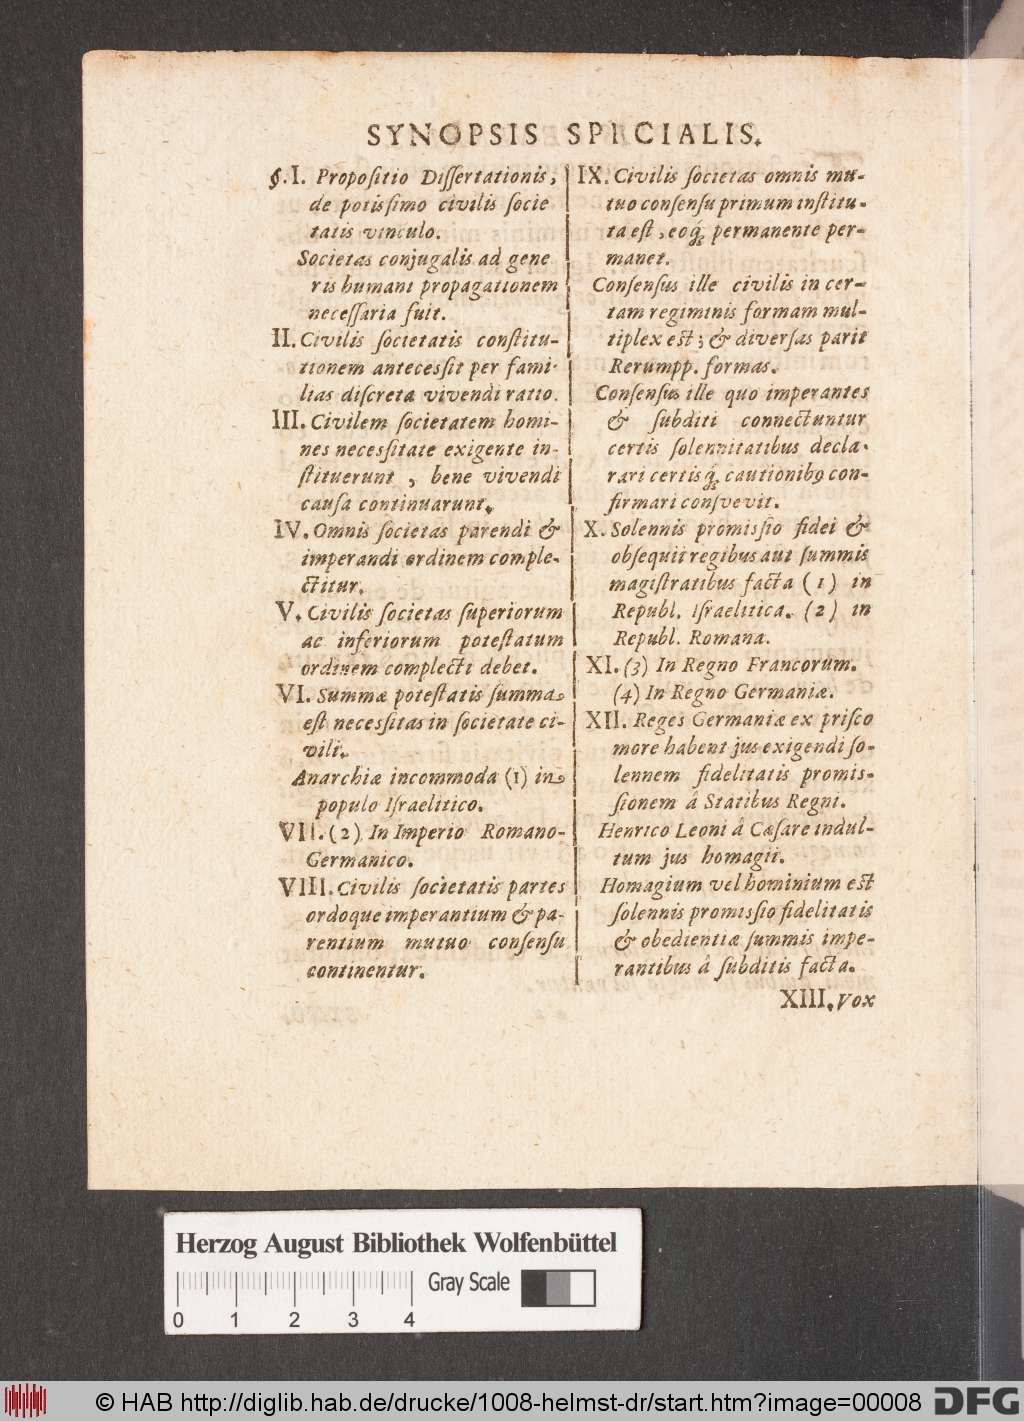 SYNOPSIS SPECIALIS.
§. I. Propoſitio Diſſertationis,
de potiſſimo civilis ſocie
tatis vinculo.
Societas conjugalis ad gene
ris humani propagationem
neceſſaria fuit.
II. Civilis ſocietatis conſtitu-
tionem antecesſit per fami-
lias diſcreta vivendi ratio.
III. Civilem ſocietatem homi-
nes necesſitate exigente in-
ſtituerunt, bene vivendi
cauſa continuarunt.
IV. Omnis ſocietas parendi &
imperandi ordinem comple-
ctitur.
V. Civilis ſocietas ſuperiorum
ac inferiorum poteſtatum
ordinem complecti debet.
VI. Summæ poteſtatis ſumma
eſt necesſitas in ſocietate ci-
vili.
Anarchiæ incommoda (1) in
populo Iſraelitico.
VII. (2) In Imperio Romano-
Germanico.
VIII. Civilis ſocietatis partes
ordoque imperantium & pa-
rentium mutuo conſenſu
continentur.
IX. Civilis ſocietas omnis mu-
tuo conſenſu primum inſtitu-
ta eſt, eoq́; permanente per-
manet.
Conſenſus ille civilis in cer-
tam regiminis formam mul-
tiplex eſt; & diverſas parit
Rerumpp. formas.
Conſenſus ille quo imperantes
& ſubditi connectuntur
certis ſolennitatibus decla-
rari certisq́; cautionibꝰ con-
firmari conſvevit.
X. Solennis promiſsio fidei &
obſequii regibus aut ſummis
magiſtratibus facta (1) in
Republ. Iſraelitica. (2) in
Republ. Romana.
XI. (3) In Regno Francorum.
(4) In Regno Germaniæ.
XII. Reges Germaniæ ex priſco
more habent jus exigendi ſo-
lennem fidelitatis promis-
ſionem â Statibus Regni.
Henrico Leoni â Cæſare indul-
tum jus homagii.
Homagium vel hominium eſt
ſolennis promisſio fidelitatis
& obedientiæ ſummis impe-
rantibus â ſubditis facta.
XIII. Vox
Herzog August Bibliothek Wolfenbüttel
Gray Scale
0 1 2 3 4
© HAB http://diglib.hab.de/drucke/1008-helmst-dr/start.htm?image=00008
DFG